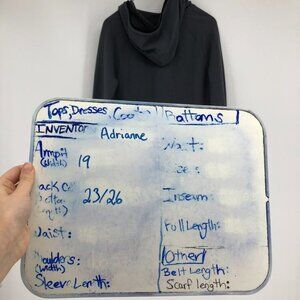 Tops, Dresses, Coats
Bottoms
INVENTORY
Adrianne
Armpit
(width)
19
23/26
Waist:
Shoulders:
(width)
Sleeve Length:
Waist:
Inseam:
Full Length:
Other
Belt Length:
Scarf length: